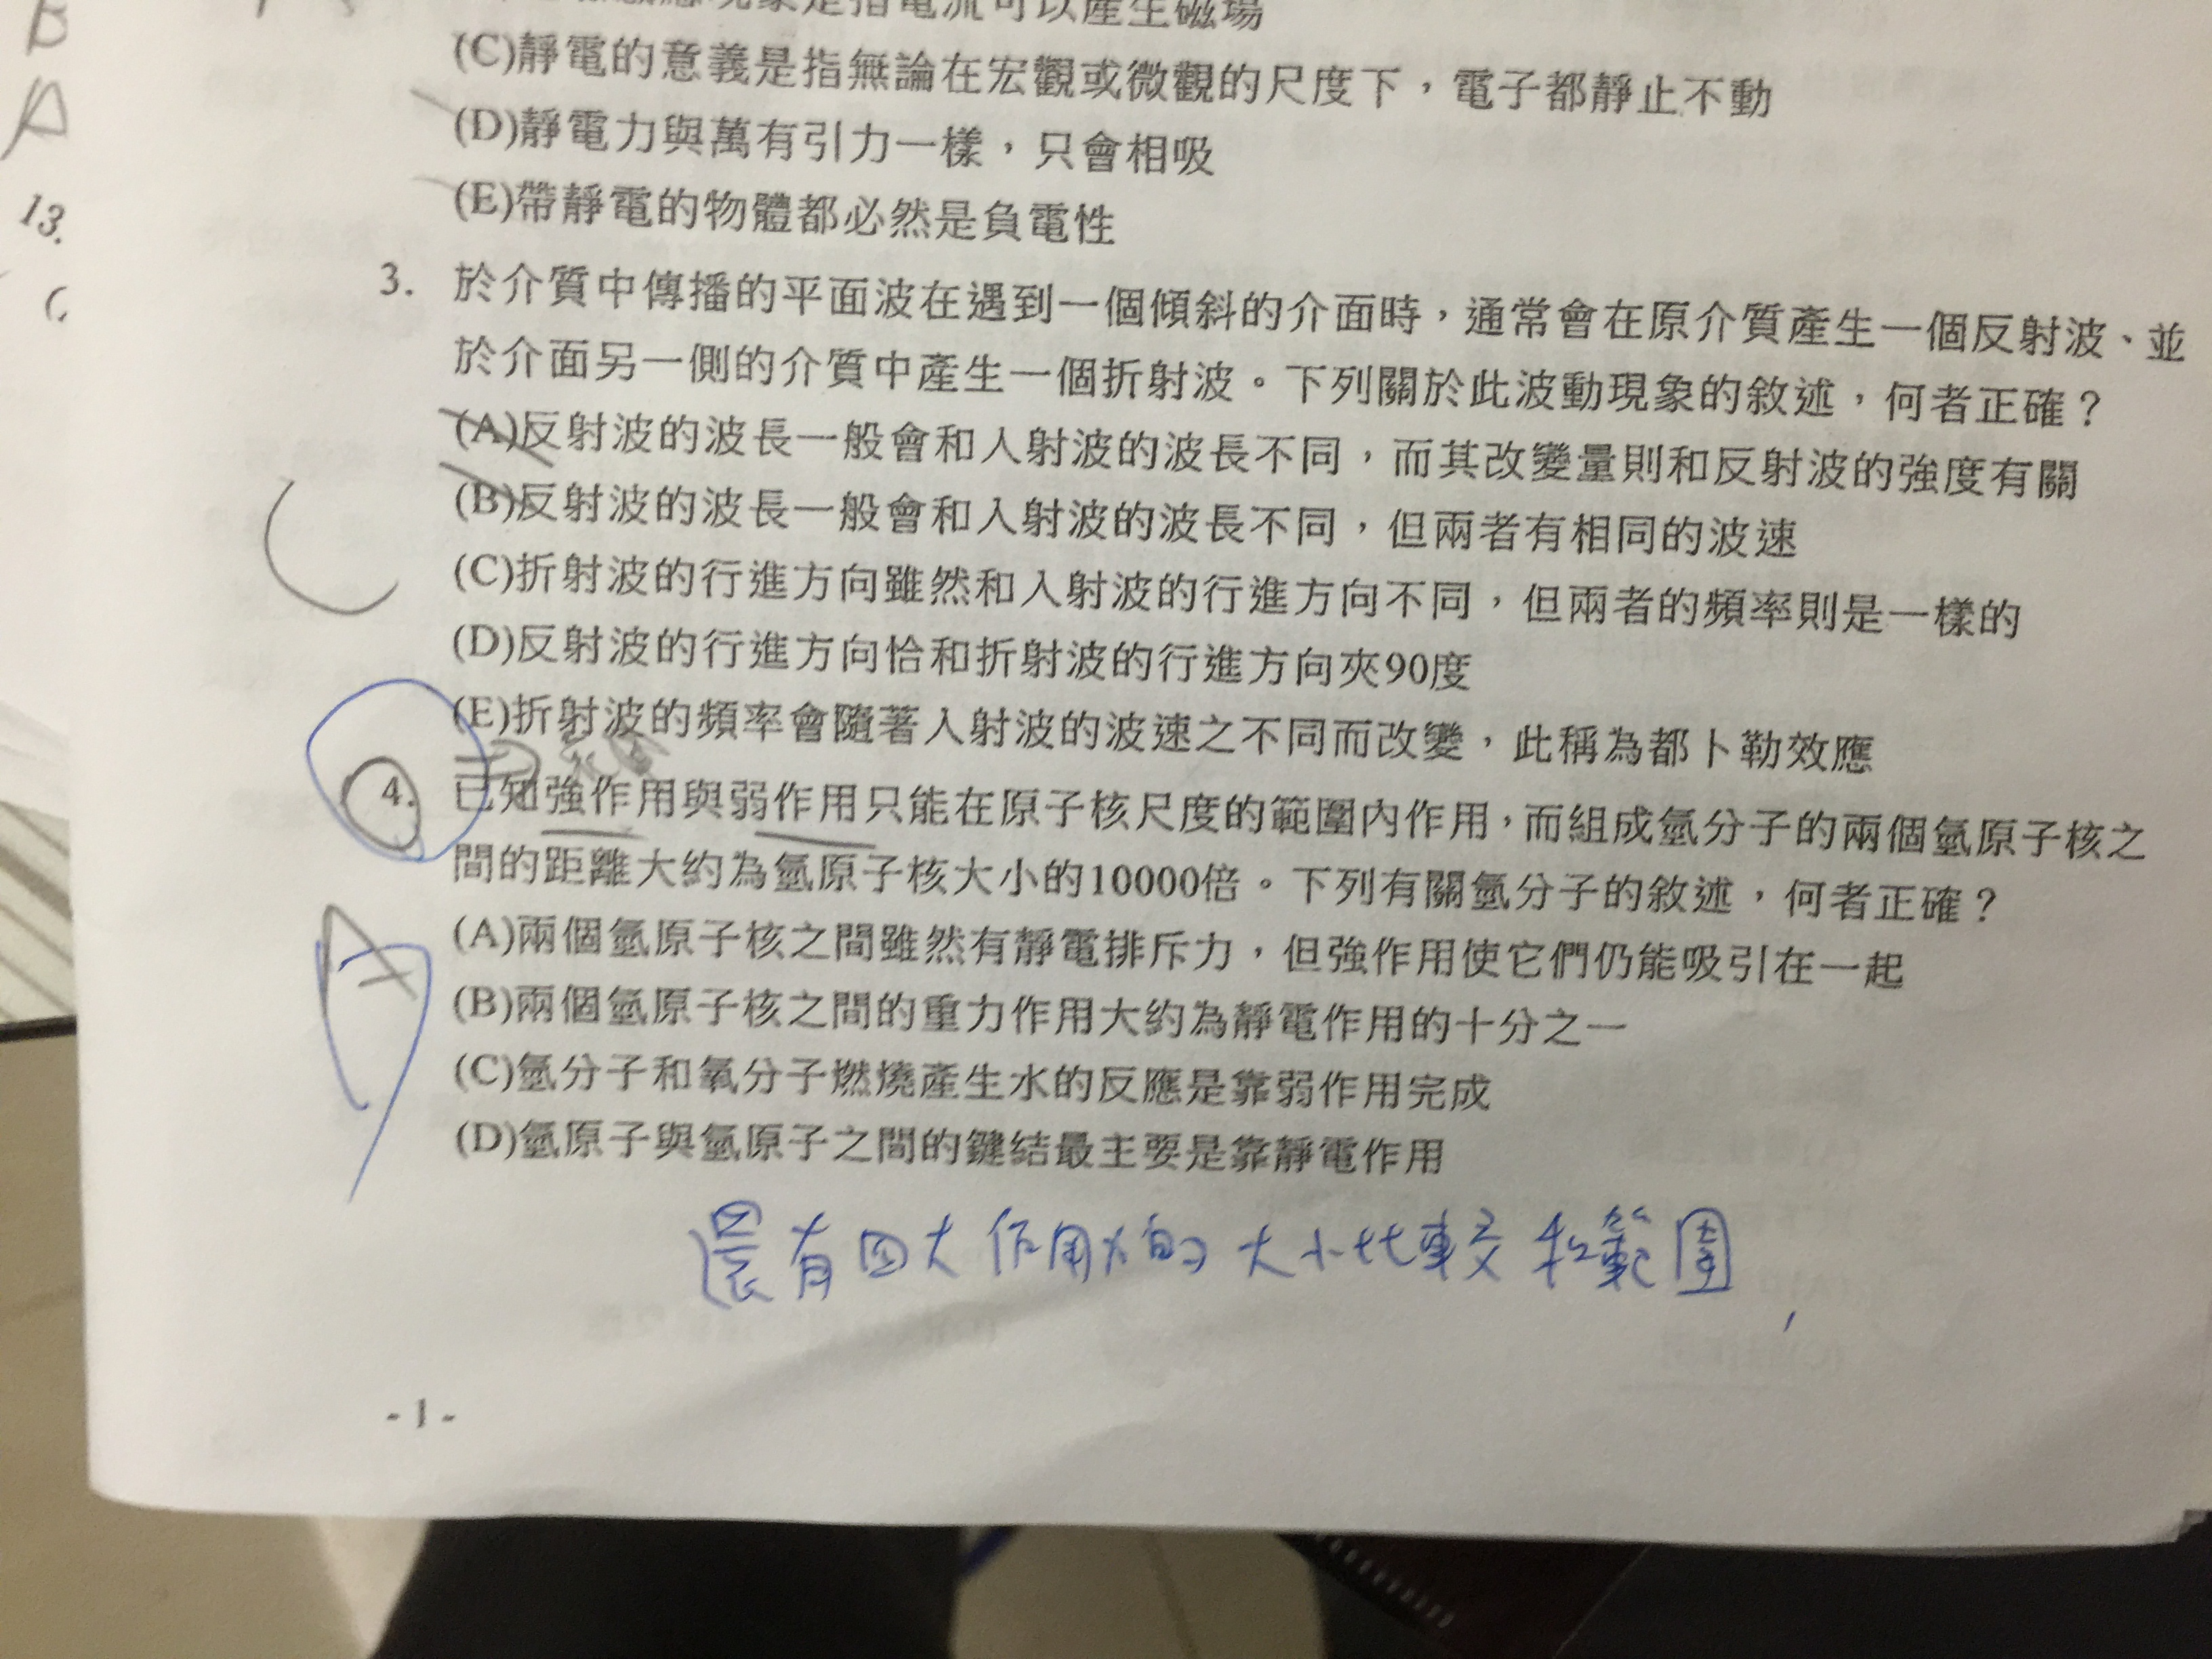 B
A
13.
現象是指電流可以產生磁場
(C)靜電的意義是指無論在宏觀或微觀的尺度下，電子都靜止不動
(D)靜電力與萬有引力一樣，只會相吸
(E)帶靜電的物體都必然是負電性
3. 於介質中傳播的平面波在遇到一個傾斜的介面時，通常會在原介質產生一個反射波、並
於介面另一側的介質中產生一個折射波。下列關於此波動現象的敘述，何者正確？
(A)反射波的波長一般會和入射波的波長不同，而其改變量則和反射波的強度有關
(B)反射波的波長一般會和入射波的波長不同，但兩者有相同的波速
C
(C)折射波的行進方向雖然和入射波的行進方向不同，但兩者的頻率則是一樣的
(D)反射波的行進方向恰和折射波的行進方向夾90度
(E)折射波的頻率會隨著入射波的波速之不同而改變，此稱為都卜勒效應
4. 已知強作用與弱作用只能在原子核尺度的範圍內作用，而組成氫分子的兩個氫原子核之
間的距離大約為氫原子核大小的10000倍。下列有關氫分子的敘述，何者正確？
A
(A)兩個氫原子核之間雖然有靜電排斥力，但強作用使它們仍能吸引在一起
(B)兩個氫原子核之間的重力作用大約為靜電作用的十分之一
(C)氫分子和氧分子燃燒產生水的反應是靠弱作用完成
(D)氫原子與氫原子之間的鍵結最主要是靠靜電作用
還有四大作用力的大小比較和範圍,
- 1 -